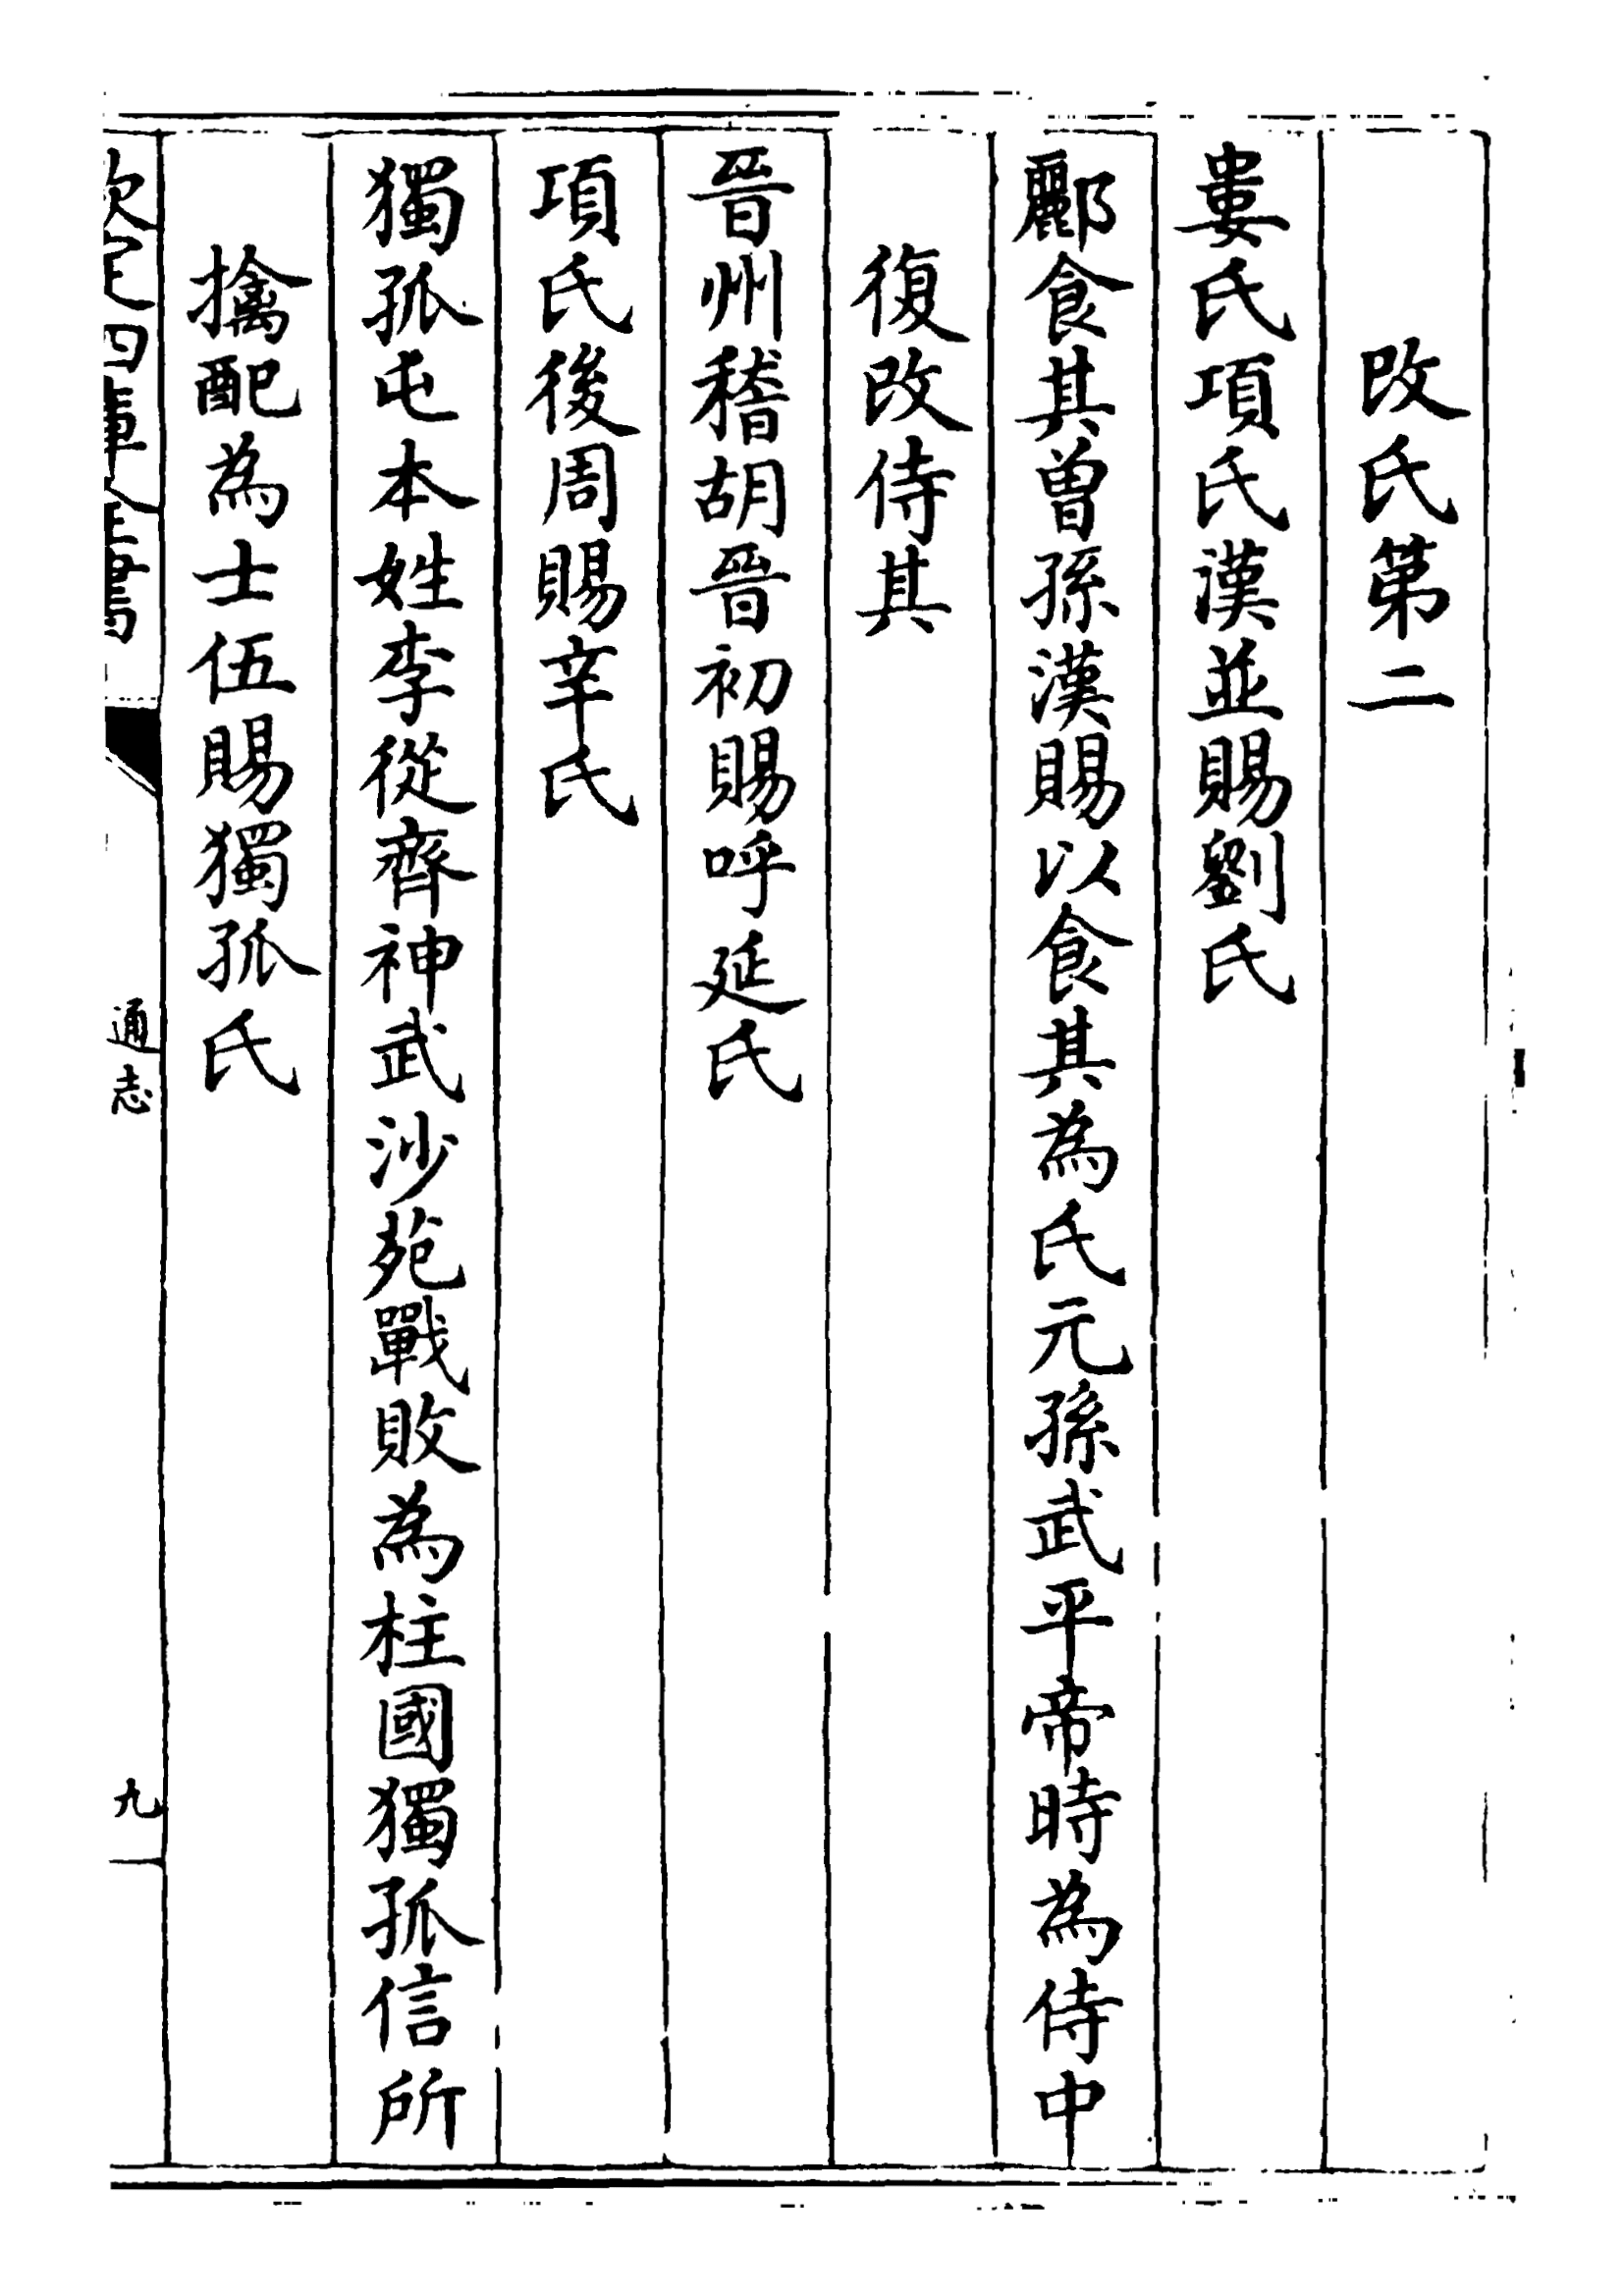 改氏第二
婁氏項氏漢並賜劉氏
酈食其曾孫漢賜以食其為氏元孫武平帝時為侍中
復改侍其
晉州稽胡晉初賜呼延氏
項氏後周賜辛氏
獨孤屯本姓李從齊神武沙苑戰敗為柱國獨孤信所
擒配為士伍賜獨孤氏
欽定四庫全書
通志
九